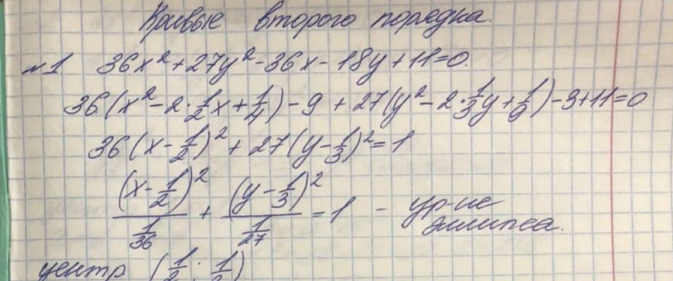 Кривые второго порядка.
№1 36x² + 27y² - 36x - 18y + 11 = 0.
36(x² - 2·1/2x + 1/4) - 9 + 27(y² - 2·1/3y + 1/9) - 3 + 11 = 0
36(x - 1/2)² + 27(y - 1/3)² = 1
(x - 1/2)²/(1/36) + (y - 1/3)²/(1/27) = 1 - ур-ие эллипса.
центр (1/2;